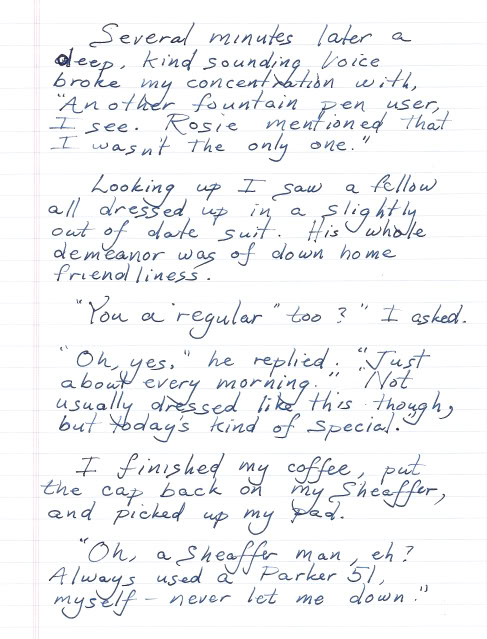 Several minutes later a
deep, kind sounding voice
broke my concentration with,
"Another fountain pen user,
I see. Rosie mentioned that
I wasn't the only one."
Looking up I saw a fellow
all dressed up in a slightly
out of date suit. His whole
demeanor was of down home
friendliness.
"You a "regular" too?" I asked.
"Oh, yes," he replied. "Just
about every morning." "Not
usually dressed like this though,
but today's kind of special."
I finished my coffee, put
the cap back on my Sheaffer,
and picked up my pad.
"Oh, a Sheaffer man, eh?
Always used a Parker 51,
myself – never let me down."